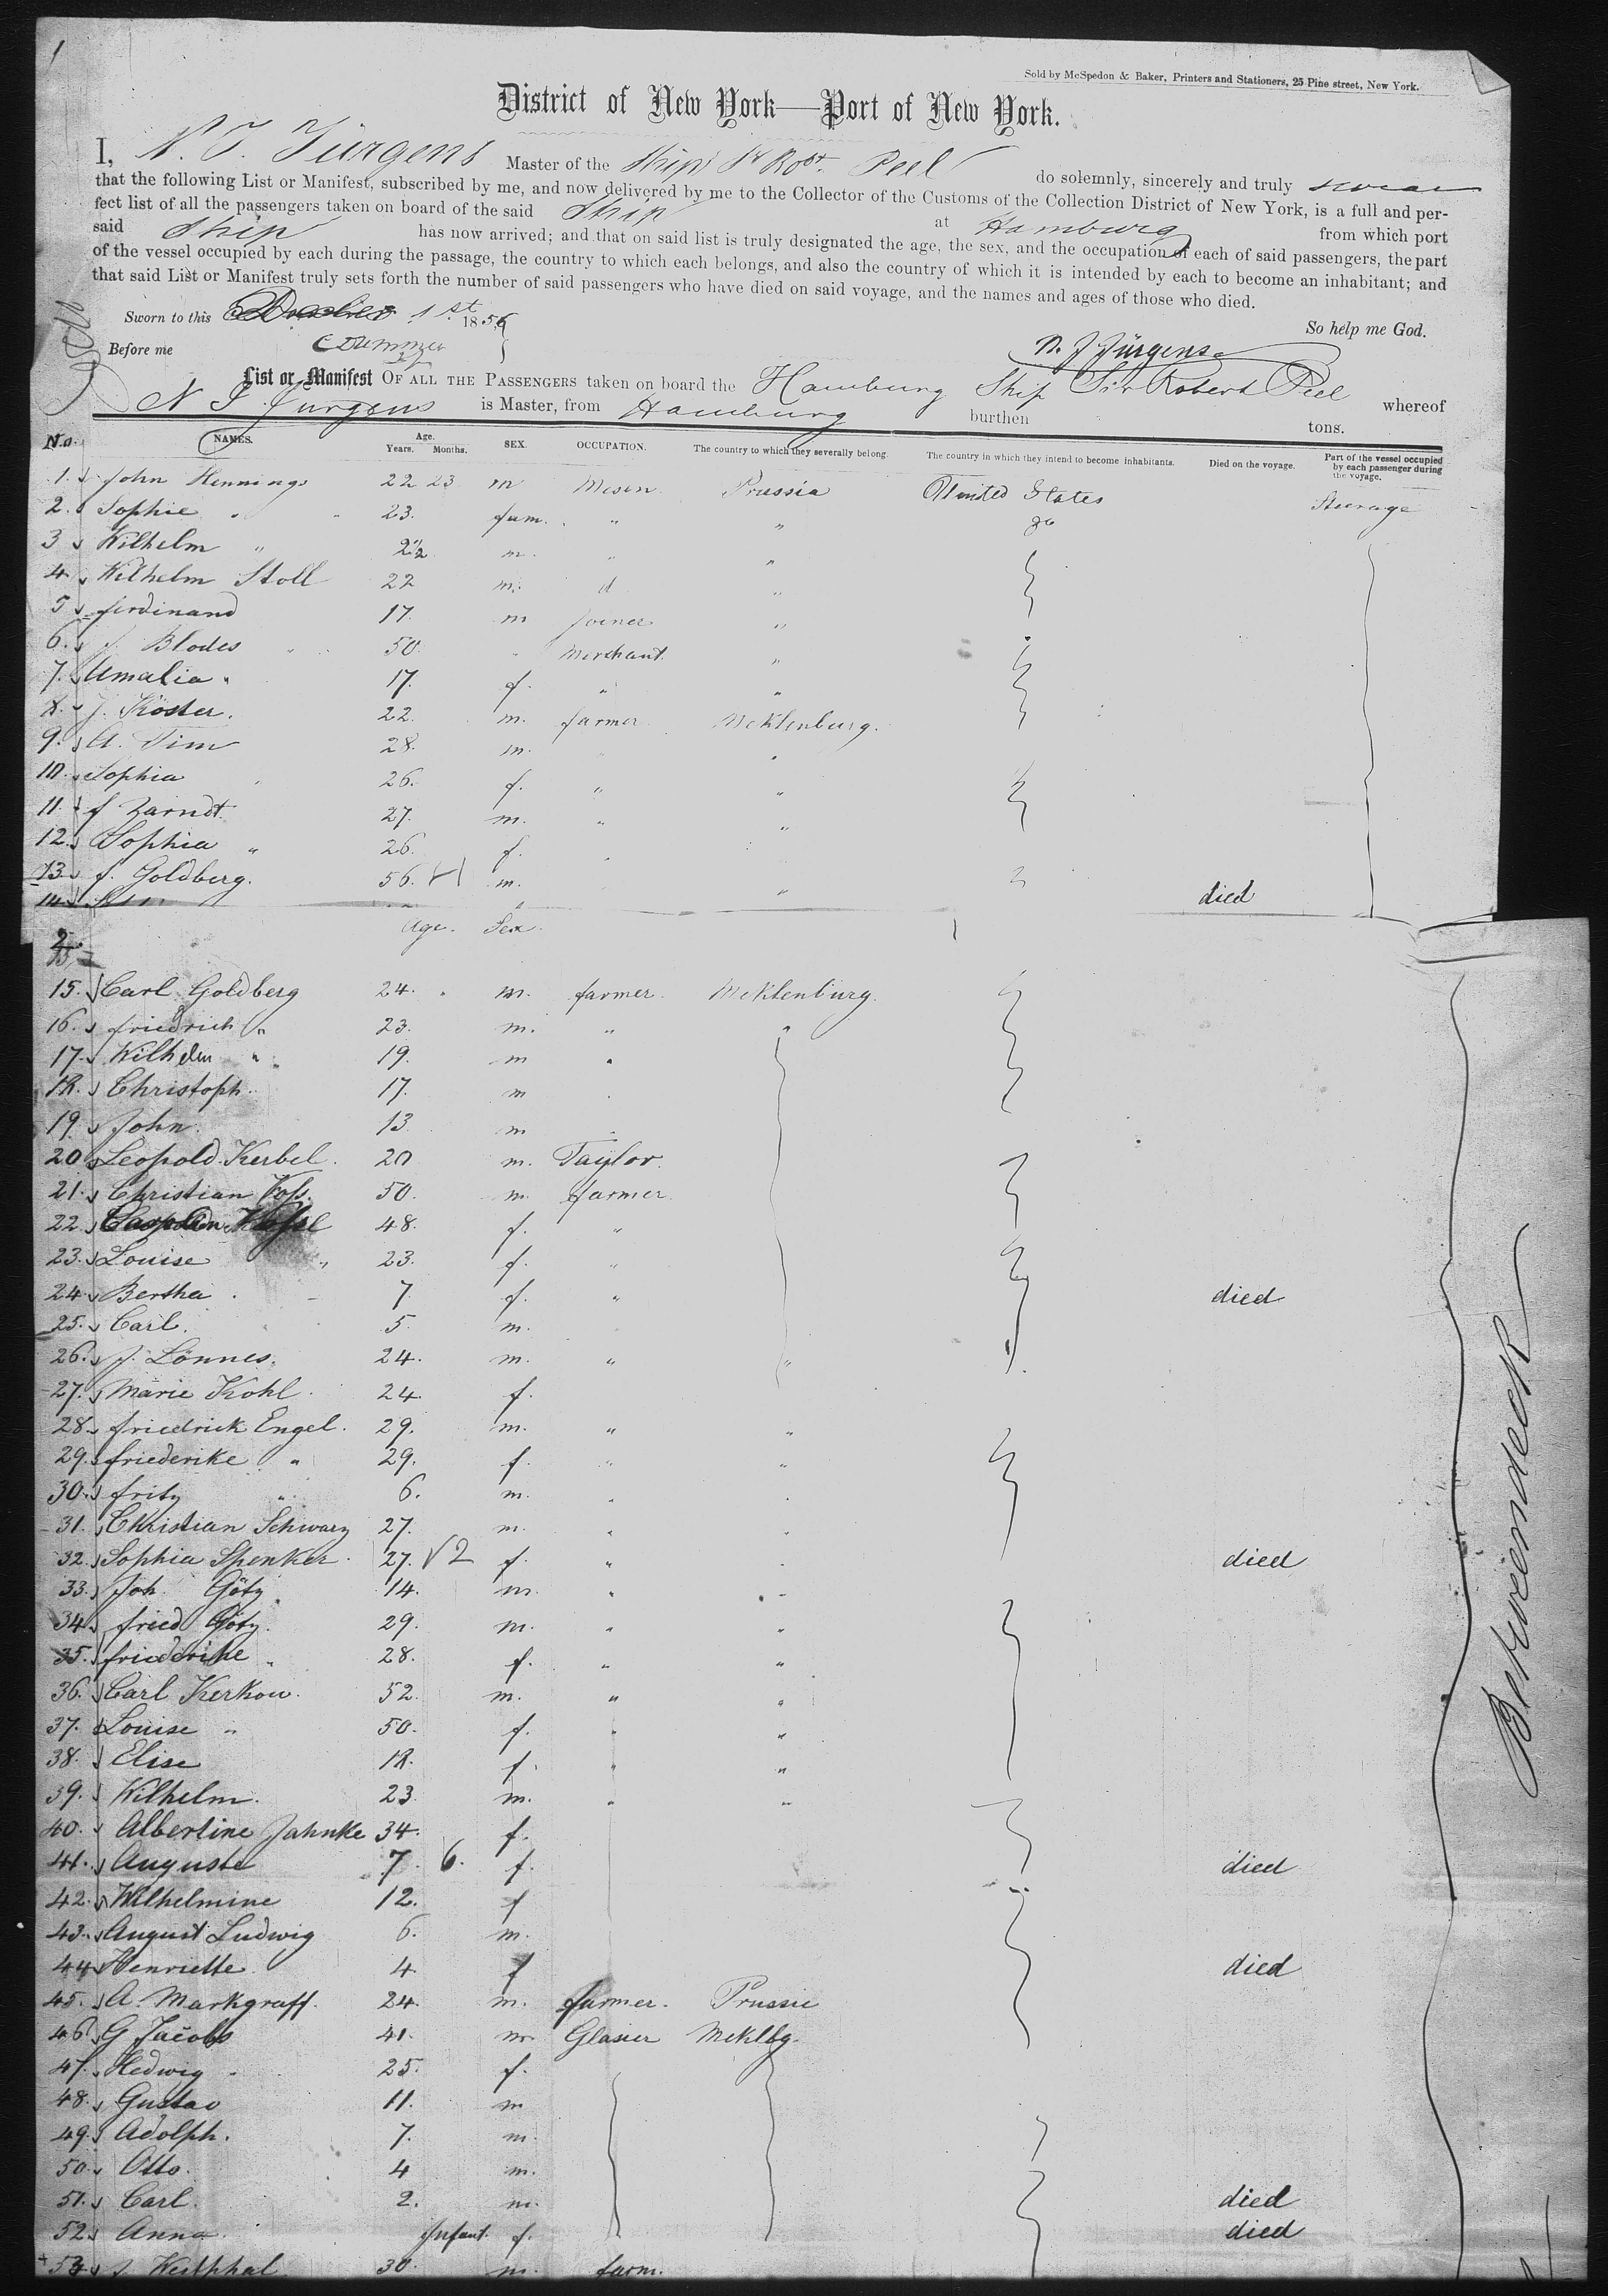 1
Sold by McSpedon & Baker, Printers and Stationers, 25 Pine street, New York.
District of New York—Port of New York.
I, N. J. Jürgens Master of the Ship Sr Robt. Peel do solemnly, sincerely and truly swear
that the following List or Manifest, subscribed by me, and now delivered by me to the Collector of the Customs of the Collection District of New York, is a full and per-
fect list of all the passengers taken on board of the said Ship at Hamburg from which port
said Ship has now arrived; and that on said list is truly designated the age, the sex, and the occupation of each of said passengers, the part
of the vessel occupied by each during the passage, the country to which each belongs, and also the country of which it is intended by each to become an inhabitant; and
that said List or Manifest truly sets forth the number of said passengers who have died on said voyage, and the names and ages of those who died.
Sworn to this 1st 1856
So help me God.
Before me
N. J. Jürgens
List or Manifest OF ALL THE PASSENGERS taken on board the Hamburg Ship Sir Robert Peel whereof
N J Jurgens is Master, from Hamburg burthen tons.
No. NAMES. Age. Years. Months. SEX. OCCUPATION. The country to which they severally belong. The country in which they intend to become inhabitants. Died on the voyage. Part of the vessel occupied by each passenger during the voyage.
1. John Hennings 22 23 m Mason Prussia United States Steerage
2. Sophie " 23. fem. " " do
3 Wilhelm " 2 1/2 m. " "
4. Wilhelm Stoll 22 m. d "
5 Ferdinand 17. m Joiner "
6. J. Blodes 50. " Merchant "
7. Amalia " 17. f. " "
8. J. Köster. 22. m. farmer Meklenburg.
9. A. Tim 28. m. "
10. Sophia 26. f. " "
11. f Zarndt 27. m. " "
12. Sophia " 26. f.
13. f. Goldberg. 56. m. " died
14.
2
Age. Sex.
15. Carl Goldberg 24. m. farmer. Meklenburg.
16. friedrich " 23. m. " "
17. Wilhelm " 19. m "
18. Christoph. 17. m
19. John. 13. m
20 Leopold Kerbel. 20 m. Taylor.
21. Christian Voss. 50. m. farmer
22. 48. f. "
23. Louise " 23. f. "
24. Bertha 7 f. " died
25. Carl. 5. m.
26. J. Lönnes. 24. m. " "
27. Marie Kohl. 24. f.
28. friedrick Engel. 29. m. " "
29. friederike " 29. f. " "
30. fritz " 6. m. "
31. Christian Schwarz 27. m. "
32. Sophia Spenker. 27. 2 f. " died
33. Joh Götz 14. m. "
34. fried Götz. 29. m. " "
35. friederike " 28. f. " "
36. Carl Kerkow. 52. m. " "
37. Louise " 50. f. " "
38. Elise 18. f. " "
39. Wilhelm. 23. m. " "
40. Albertine Jahnke 34. f.
41. Auguste 7. 6. f. died
42. Wilhelmine 12. f
43. August Ludwig 6. m.
44 Henriette 4. f died
45. A. Markgraff. 24. m. farmer. Prussie
46 G Jacobs 41. m Glasier Meklbg.
47. Hedwig 25. f.
48. Gustav 11. m
49. Adolph. 7. m.
50. Otto. 4 m.
51. Carl. 2. m. died
52. Anna. Infant. f. died
53 J Westphal. 30. m. farm.
Betweendeck